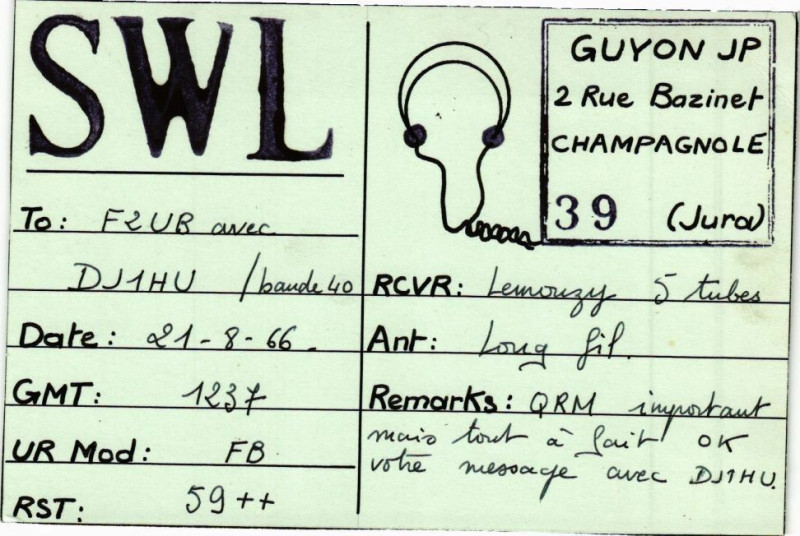 SWL
To: F2UB avec
DJ1HU /bande 40
Date: 21-8-66.
GMT: 1237
UR Mod: FB
RST: 59++
GUYON JP
2 Rue Bazinet
CHAMPAGNOLE
39 (Jura)
RCVR: Lemouzy 5 tubes
Ant: Long fil.
Remarks: QRM important
mais tout à fait OK
votre message avec DJ1HU.